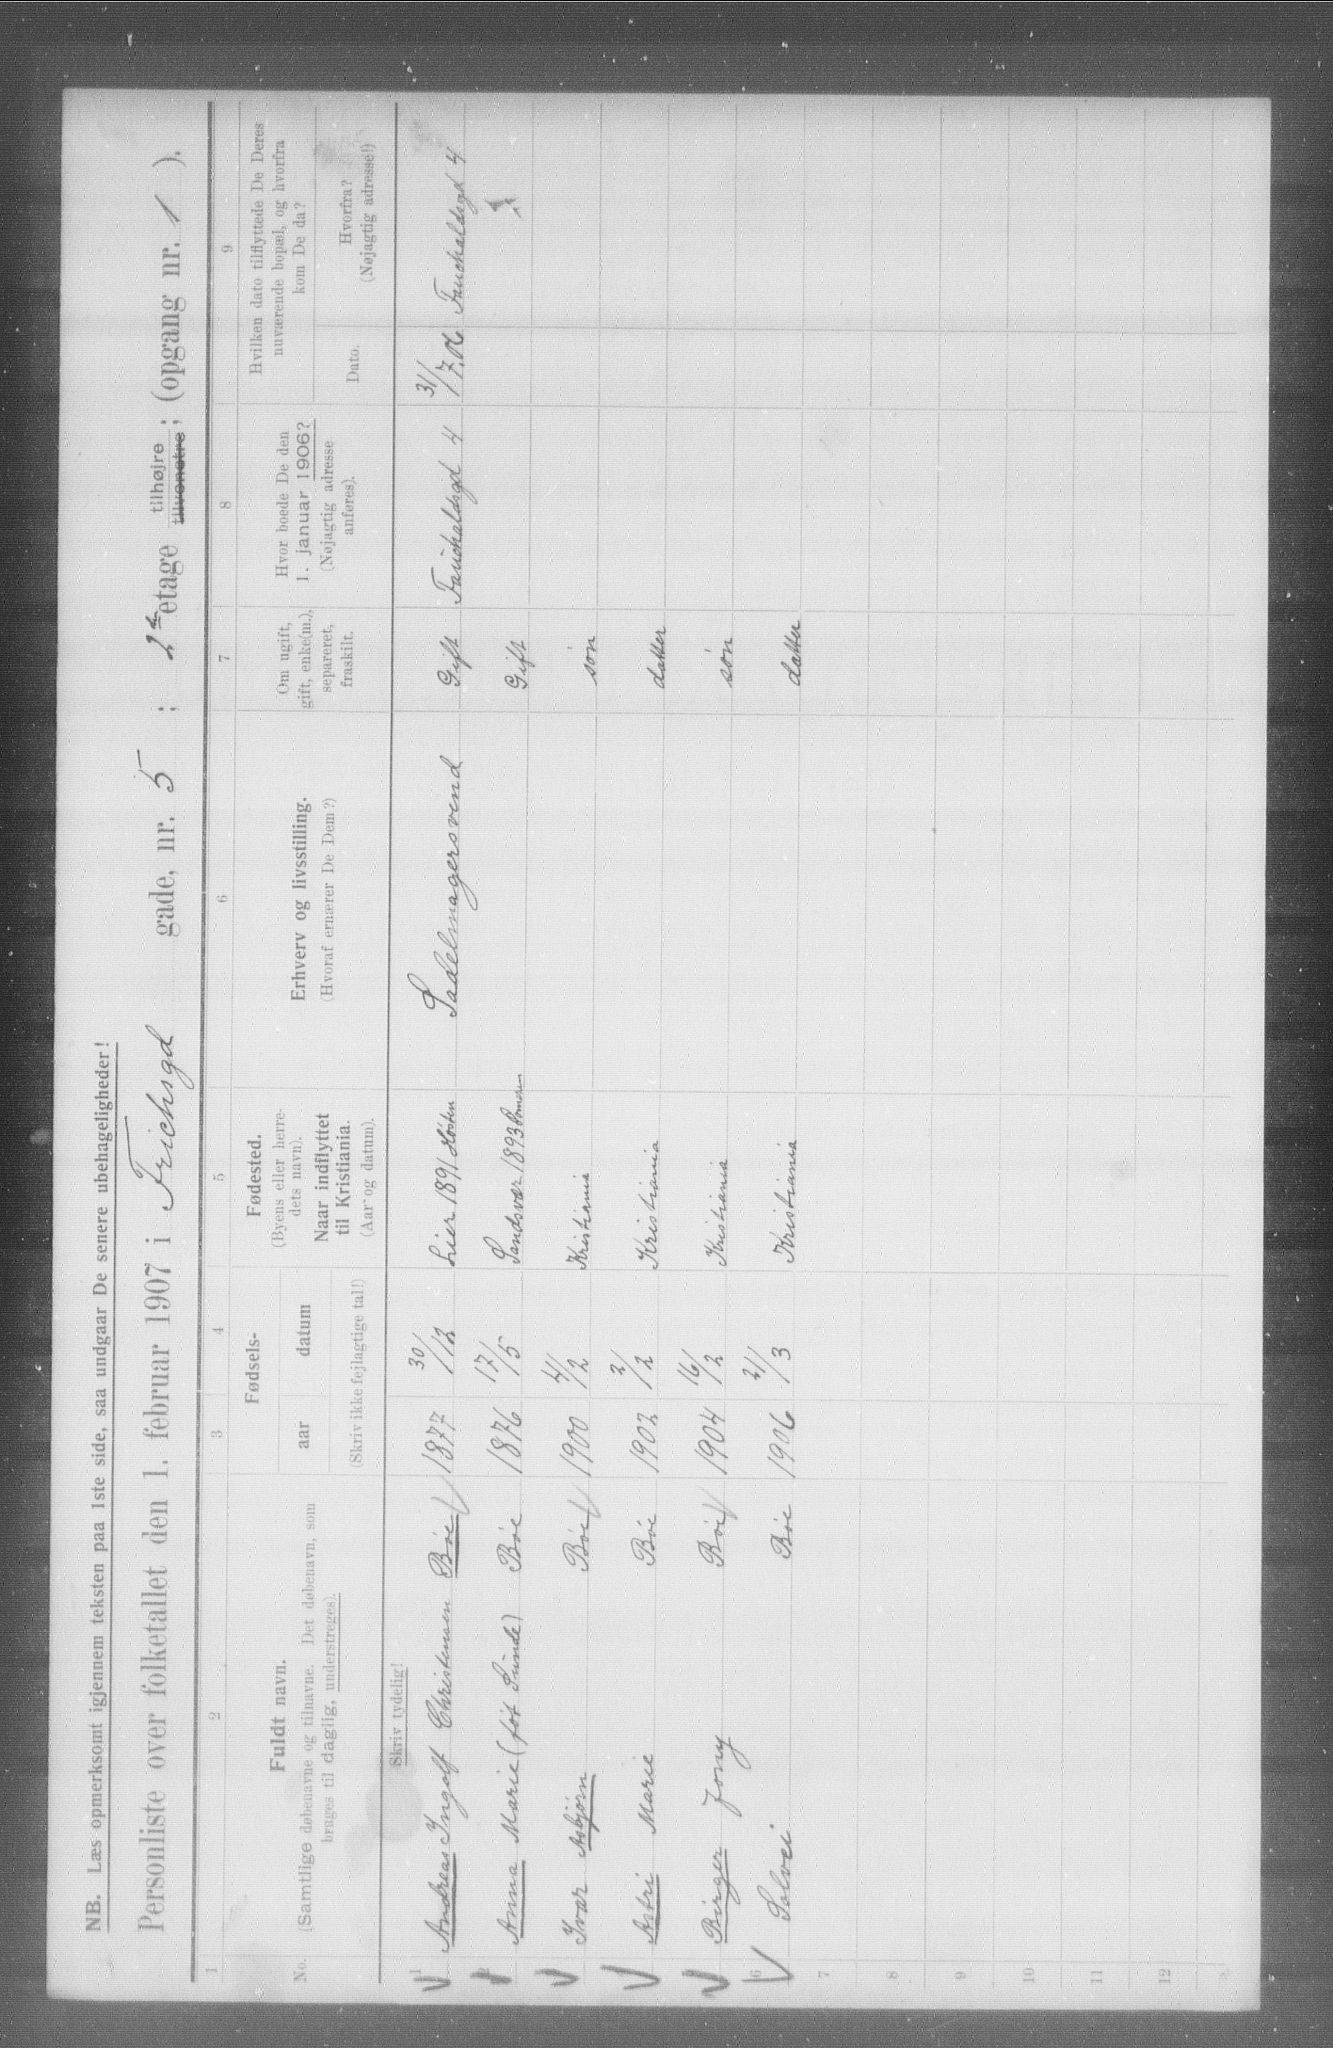 NB. Læs opmerksomt igjennem teksten paa 1ste side, saa undgaar De senere ubehageligheder!
Personliste over folketallet den 1. februar 1907 i Frichsgd gade, nr. 5 ; 2den etage tilhøjre tilvenstre; (opgang nr. 1 ).
1 2 3 4 5 6 7 8 9
No.
Fuldt navn.
(Samtlige døbenavne og tilnavne. Det døbenavn, som
bruges til daglig, understreges).
Fødsels-
aar datum
(Skriv ikke fejlagtige tal!)
Fødested.
(Byens eller herre-
dets navn).
Naar indflyttet
til Kristiania.
(Aar og datum).
Erhverv og livsstilling.
(Hvoraf ernærer De Dem?)
Om ugift,
gift, enke(m.),
separeret,
fraskilt.
Hvor boede De den
1. januar 1906?
(Nøjagtig adresse
anføres).
Hvilken dato tilflyttede De Deres
nuværende bopæl, og hvorfra
kom De da?
Dato.
Hvorfra?
(Nøjagtig adresse!)
Skriv tydelig!
1 Andreas Ingolf Christensen Bøe 1877 30/12 Lier 1891 Høsten Sadelmagersvend Gift Fauchaldsgd 4 31/7.06 Fauchaldsgd 4
2 Anna Marie (føt Sunde) Bøe 1876 17/5 Sandsvær 1893 Gift
Ivar Asbjørn Bøe 1900 4/2 Kristiania søn
Astri Marie Bøe 1902 2/2 Kristiania datter
Birger Jony Bøe 1904 16/2 Kristiania søn
6 Solvei Bøe 1906 21/3 Kristiania datter
7
8
9
10
11
12